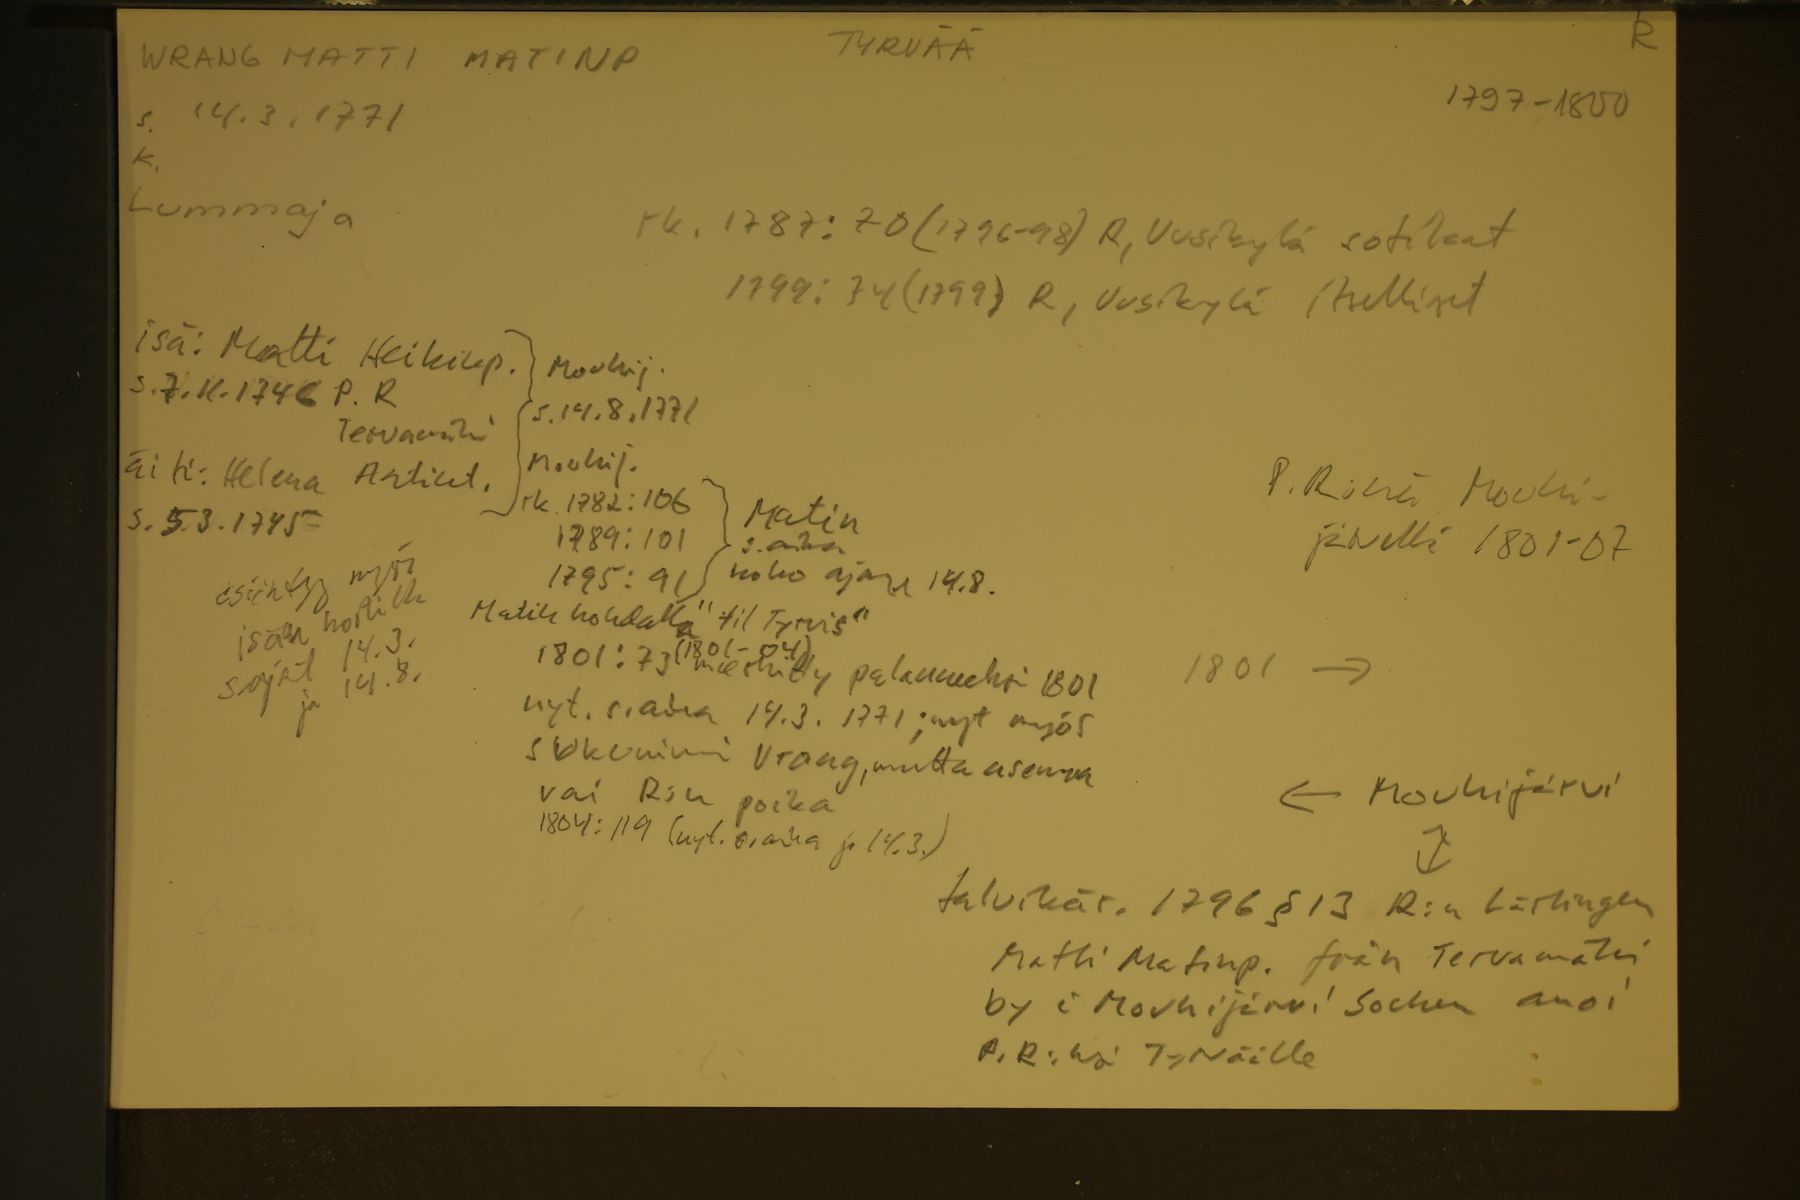 WRANG MATTI MATINP
TYRVÄÄ
R
1797-1800
s. 14.3.1771
k.
Lummaja
rk. 1787: 70 (1796-98) R, Uusikylä sotilaat
1799: 74 (1799) R, Uusikylä itselliset
isä: Matti Heikinp.
s. 7.11.1746 P. R
Tervamäki
äiti: Helena Antint.
s. 5.3.1745
Mouhij.
s. 14.8.1771
Mouhij.
rk. 1782: 106
1789: 101
1795: 91
Matin
s.aika
koko ajan 14.8.
esiintyy myös
isän kortilla
s.ajat 14.3.
ja 14.8.
Matin kohdalla "til Tyrvis"
1801: 73 (1801-04) merkitty palanneeksi 1801
nyt. s.aika 14.3.1771; nyt myös
sukunimi Vrang, mutta asema
vai R:n poika
1804: 119 (nyt. s.aika jo 14.3.)
P.R:nä Mouhi-
järvellä 1801-07
1801 →
← Mouhijärvi
talvikär. 1796 § 13 R:n Lärlingen
Matti Matinp. från Tervamäki
by i Mouhijärvi Socken anoi
P.R:ksi Tyrväälle